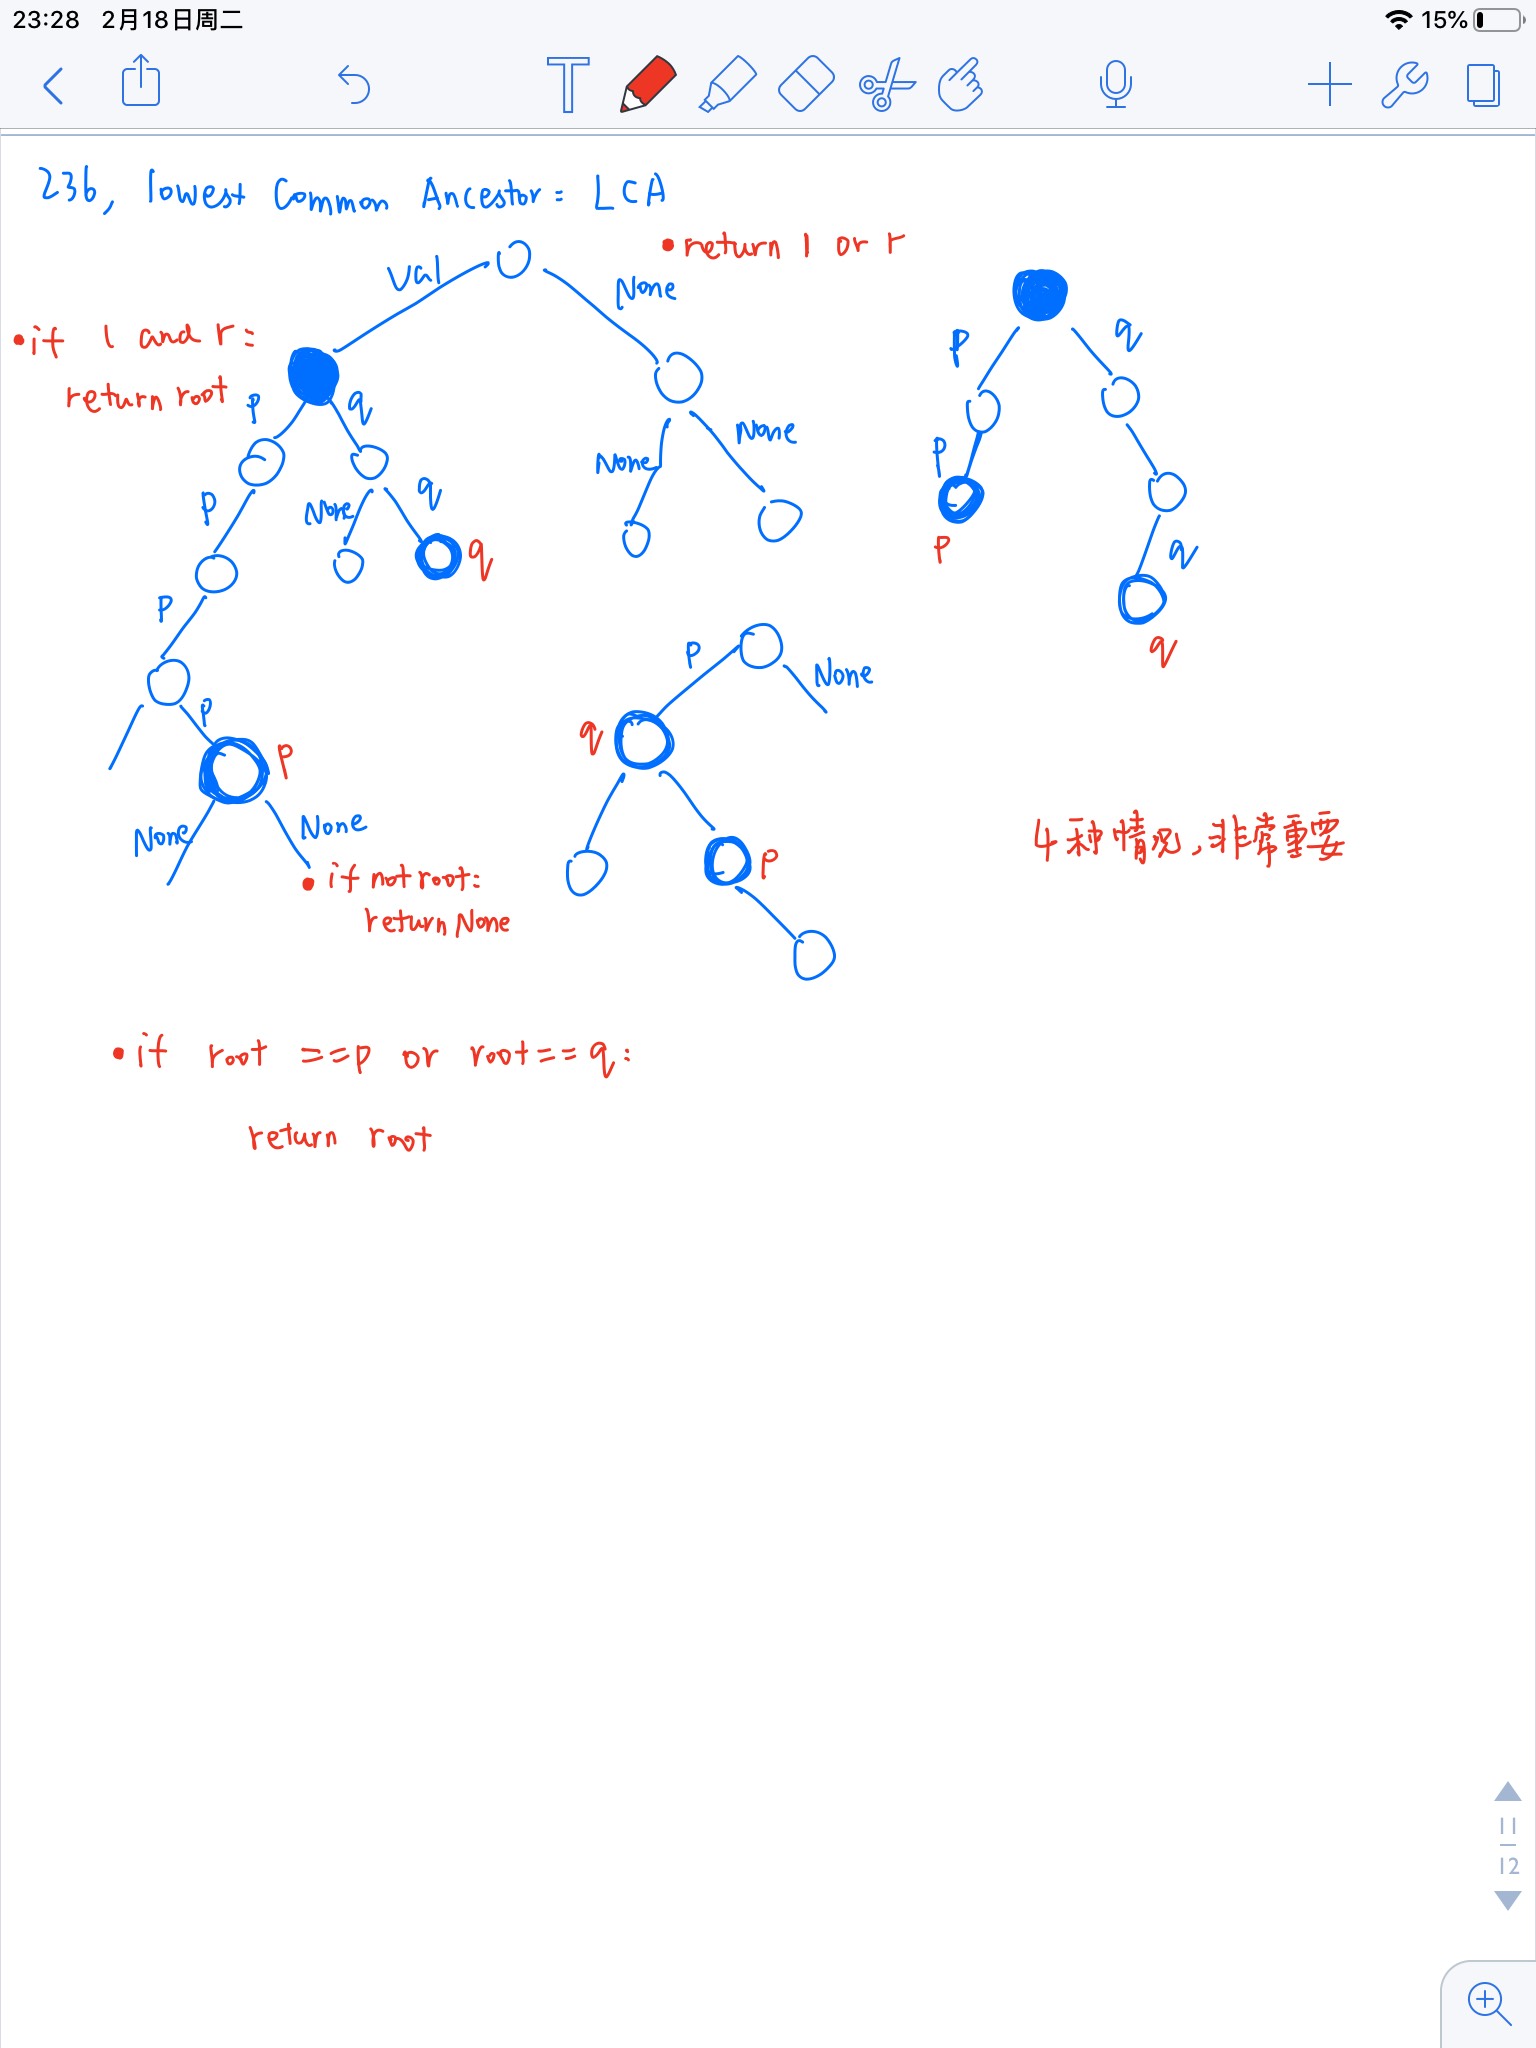 23:28 2月18日周二
15%
T
236, lowest Common Ancestor = LCA
• return l or r
val
None
• if l and r:
return root
p
q
p
q
None
None
None
p
q
p
q
p
q
q
p
q
p
None
q
p
p
p
None
None
• if not root:
return None
4种情况,非常重要
• if root ==p or root==q:
return root
11
12